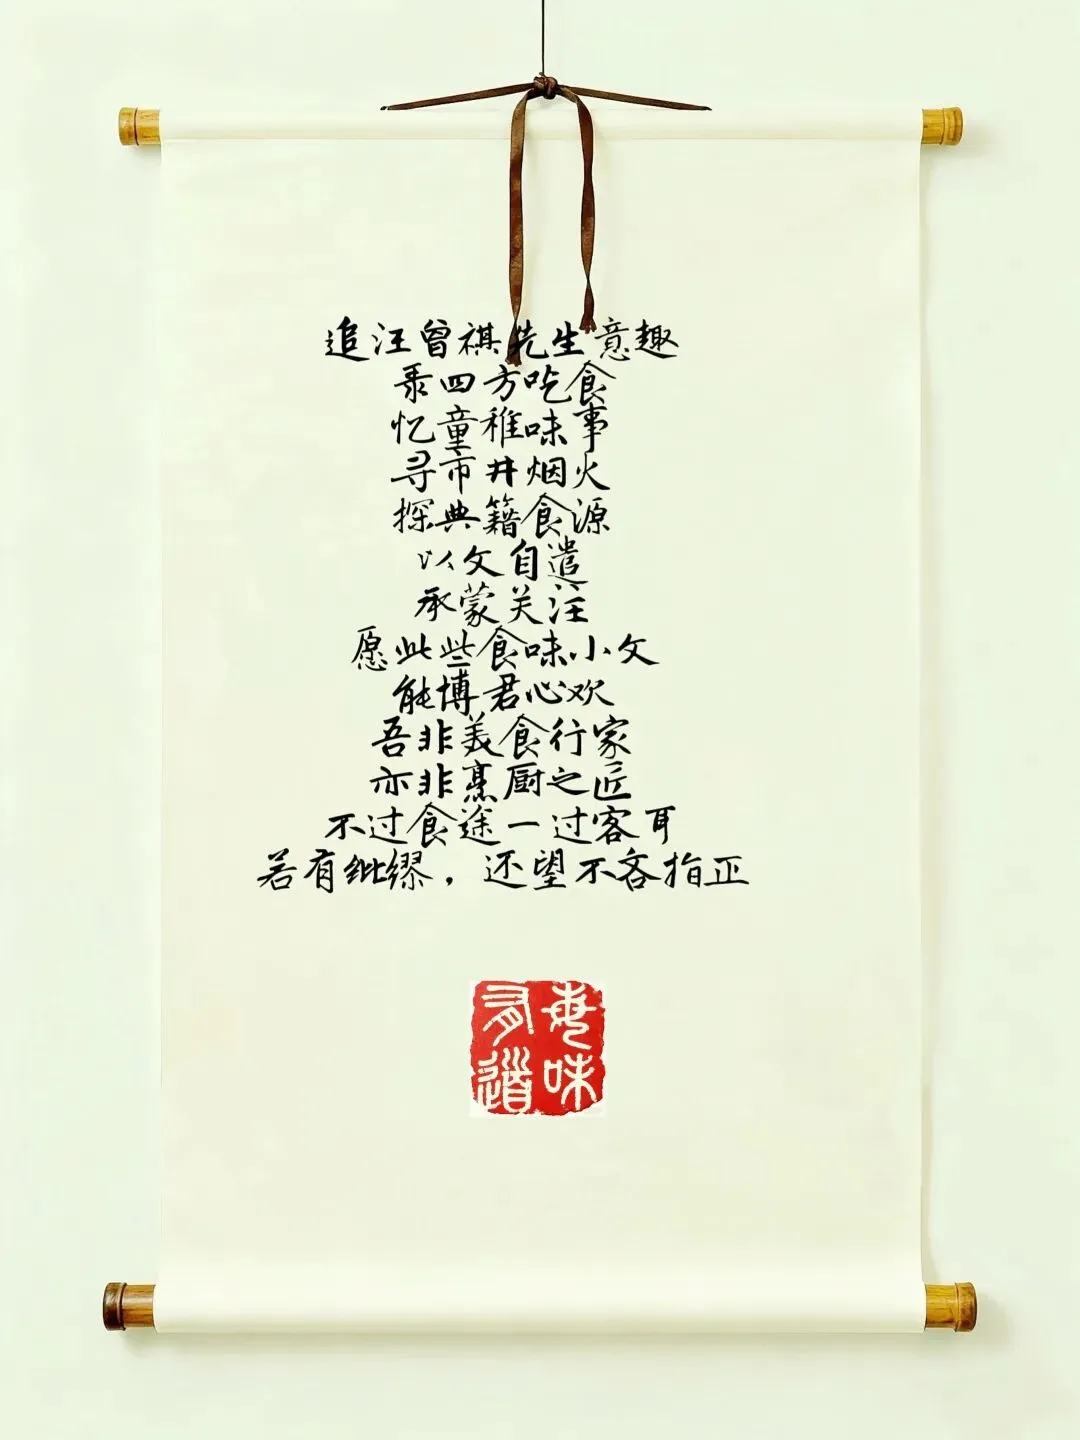 追汪曾祺先生意趣
录四方吃食
忆童稚味事
寻市井烟火
探典籍食源
以文自遣
承蒙关注
愿此些食味小文
能博君心欢
吾非美食行家
亦非烹厨之匠
不过食途一过客耳
若有纰缪，还望不吝指正
味
有道